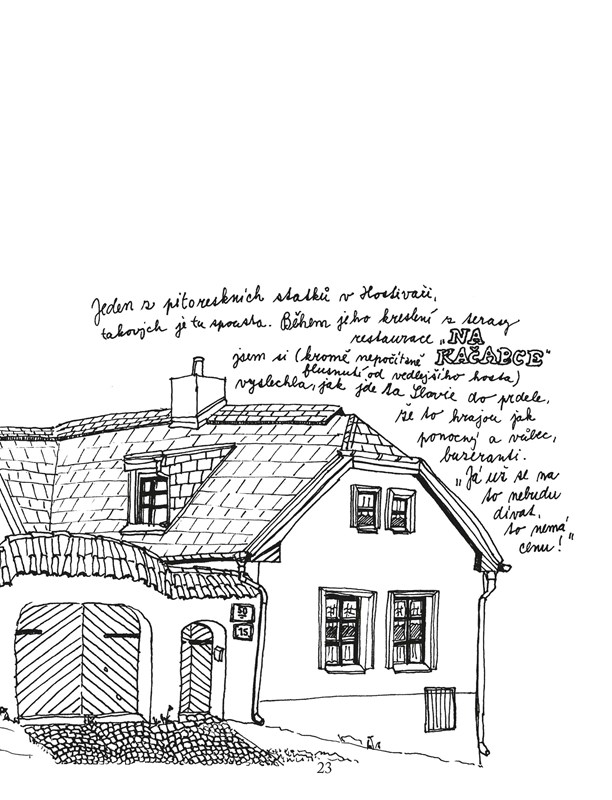 Jeden z pitoreskních statků v Hostivaři,
takových je tu spousta. Během jeho kreslení z terasy
restaurace „NA
KAČABCE“
jsem si (kromě nepočítaně
blusnutí od vedlejšího hosta)
vyslechla, jak jde ta Slavie do prdele,
že to hrajou jak
ponocný a vůbec,
buzeranti.
„Já už se na
to nebudu
dívat,
to nemá
cenu!“
50
15
23